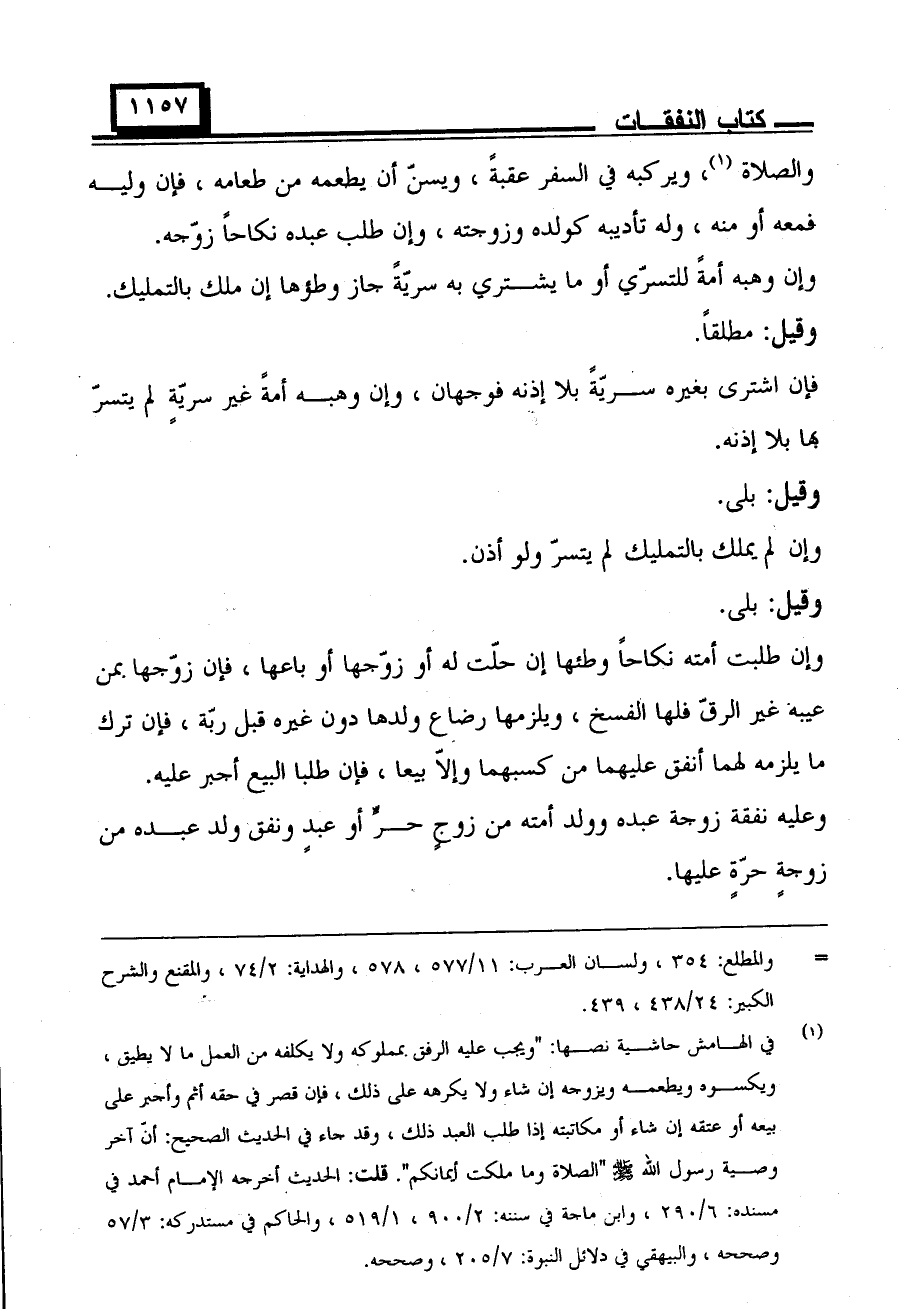 كتاب النفقـات
١١٥٧
والصلاة (١)، ويركبه في السفر عقبةً ، ويسنّ أن يطعمه من طعامه ، فإن وليـــه
فمعه أو منه ، وله تأديبه كولده وزوجته ، وإن طلب عبده نكاحاً زوّجه.
وإن وهبه أمةً للتسرّي أو ما يشــتري به سريّةً جاز وطؤها إن ملك بالتمليك.
وقيل: مطلقاً.
فإن اشترى بغيره ســريّةً بلا إذنه فوجهان ، وإن وهبــه أمةً غير سريّةٍ لم يتسرّ
بها بلا إذنه.
وقيل: بلى.
وإن لم يملك بالتمليك لم يتسرّ ولو أذن.
وقيل: بلى.
وإن طلبت أمته نكاحاً وطئها إن حلّت له أو زوّجها أو باعها ، فإن زوّجها بمن
عيبه غير الرقّ فلها الفسخ ، ويلزمها رضاع ولدها دون غيره قبل ربّة ، فإن ترك
ما يلزمه لهما أنفق عليهما من كسبهما وإلاّ بيعا ، فإن طلبا البيع أجبر عليه.
وعليه نفقة زوجة عبده وولد أمته من زوجٍ حــرٍّ أو عبدٍ ونفق ولد عبــده من
زوجةٍ حرّةٍ عليها.
= والمطلع: ٣٥٤ ، ولســان العــرب: ٥٧٧/١١ ، ٥٧٨ ، والهداية: ٧٤/٢ ، والمقنع والشرح
الكبير: ٤٣٨/٢٤ ، ٤٣٩.
(١) في الهــامش حاشية نصــها: "ويجب عليه الرفق بمملوكه ولا يكلفه من العمل ما لا يطيق ،
ويكســوه ويطعمــه ويزوجه إن شاء ولا يكرهه على ذلك ، فإن قصر في حقه أثم وأجبر على
بيعه أو عتقه إن شاء أو مكاتبته إذا طلب العبد ذلك ، وقد جاء في الحديث الصحيح: أنّ آخر
وصــية رسول الله ﷺ "الصلاة وما ملكت أيمانكم". قلت: الحديث أخرجه الإمــام أحمد في
مسنده: ٢٩٠/٦ ، وابن ماجة في سننه: ٩٠٠/٢ ، ٥١٩/١ ، والحاكم في مستدركه: ٥٧/٣
وصححه ، والبيهقي في دلائل النبوة: ٢٠٥/٧ ، وصححه.